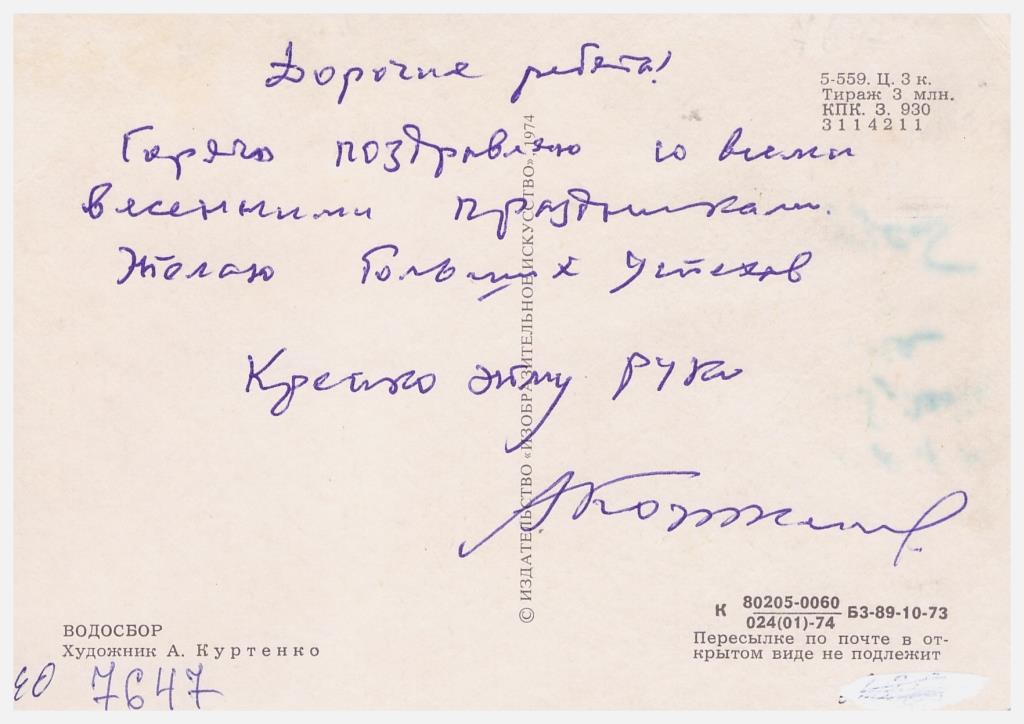 Дорогие ребята!
Горячо поздравляю со всеми
весенними праздниками.
Желаю больших успехов
Крепко жму руки
5-559. Ц. 3 к.
Тираж 3 млн.
КПК. З. 930
3114211
© ИЗДАТЕЛЬСТВО «ИЗОБРАЗИТЕЛЬНОЕ ИСКУССТВО», 1974
ВОДОСБОР
Художник А. Куртенко
7647
К 80205-0060 БЗ-89-10-73
024(01)-74
Пересылке по почте в от-
крытом виде не подлежит